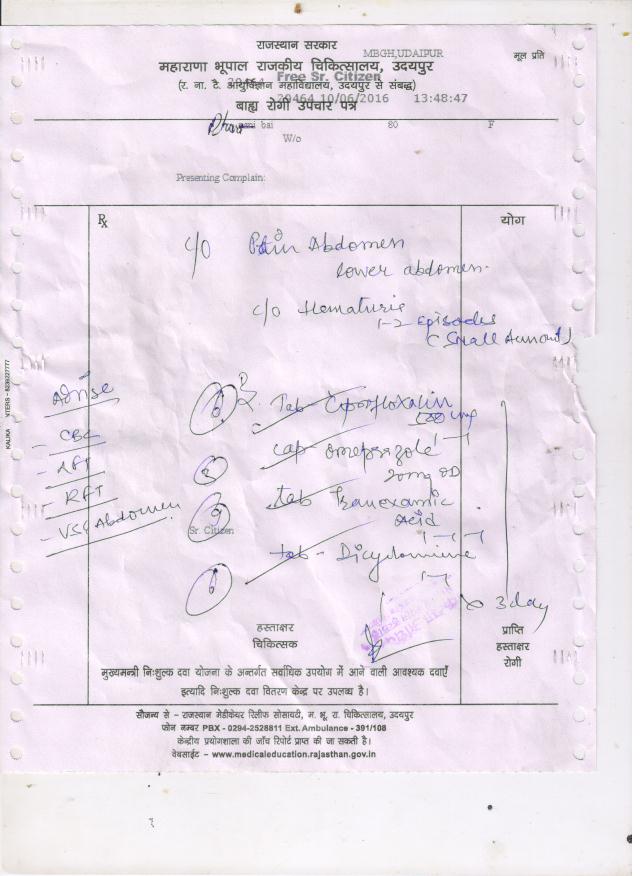 राजस्थान सरकार
MBGH,UDAIPUR
मूल प्रति
महाराणा भूपाल राजकीय चिकित्सालय, उदयपुर
Free Sr. Citizen
(र. ना. टै. आयुर्विज्ञान महाविद्यालय, उदयपुर से संबद्ध)
29464 10/06/2016 13:48:47
बाह्य रोगी उपचार पत्र
bai 80 F
W/o
Presenting Complain:
Rx
योग
C/O Pain Abdomen
lower abdomen.
C/o Hematuria
1-2 Episodes
(Small Amount)
Advise
- CBC
- LFT
RFT
- USG Abdomen
Tab Ciprofloxacin
500 mg
1-1
cap omeprazole
20mg OD
tab Tranexamic
Acid
1-1-1
Sr. Citizen
tab - Dicyclomine
1-1
x 3 day
हस्ताक्षर
चिकित्सक
प्राप्ति
हस्ताक्षर
रोगी
मुख्यमन्त्री निःशुल्क दवा योजना के अन्तर्गत सर्वाधिक उपयोग में आने वाली आवश्यक दवाएँ
इत्यादि निःशुल्क दवा वितरण केन्द्र पर उपलब्ध है।
सौजन्य से – राजस्थान मेडीकेयर रिलीफ सोसायटी, म. भू. रा. चिकित्सालय, उदयपुर
फोन नम्बर PBX - 0294-2528811 Ext. Ambulance - 391/108
केन्द्रीय प्रयोगशाला की जाँच रिपोर्ट प्राप्त की जा सकती है।
वेबसाईट – www.medicaleducation.rajasthan.gov.in